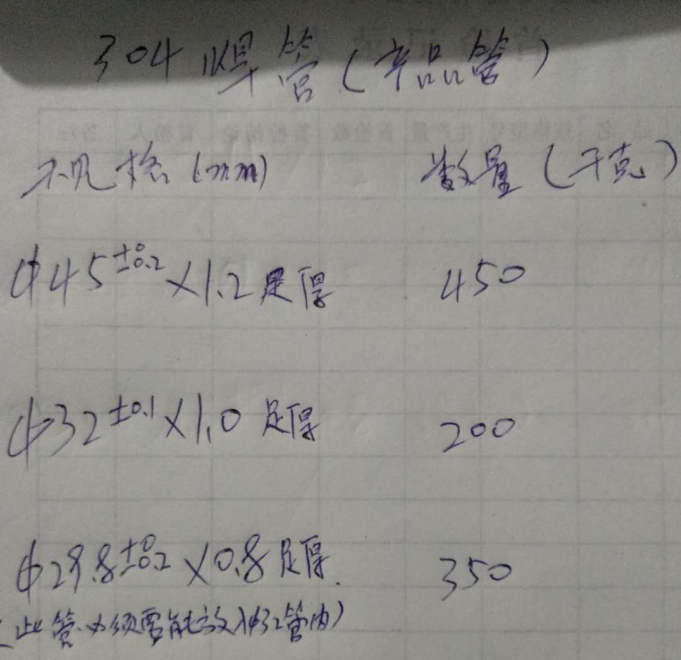 304焊管(产品管)
规格(mm) 数量(千克)
φ45±0.2×1.2足厚 450
φ32±0.1×1.0足厚 200
φ29.8±0.2×0.8足厚. 350
(此管必须要能放入φ32管内)